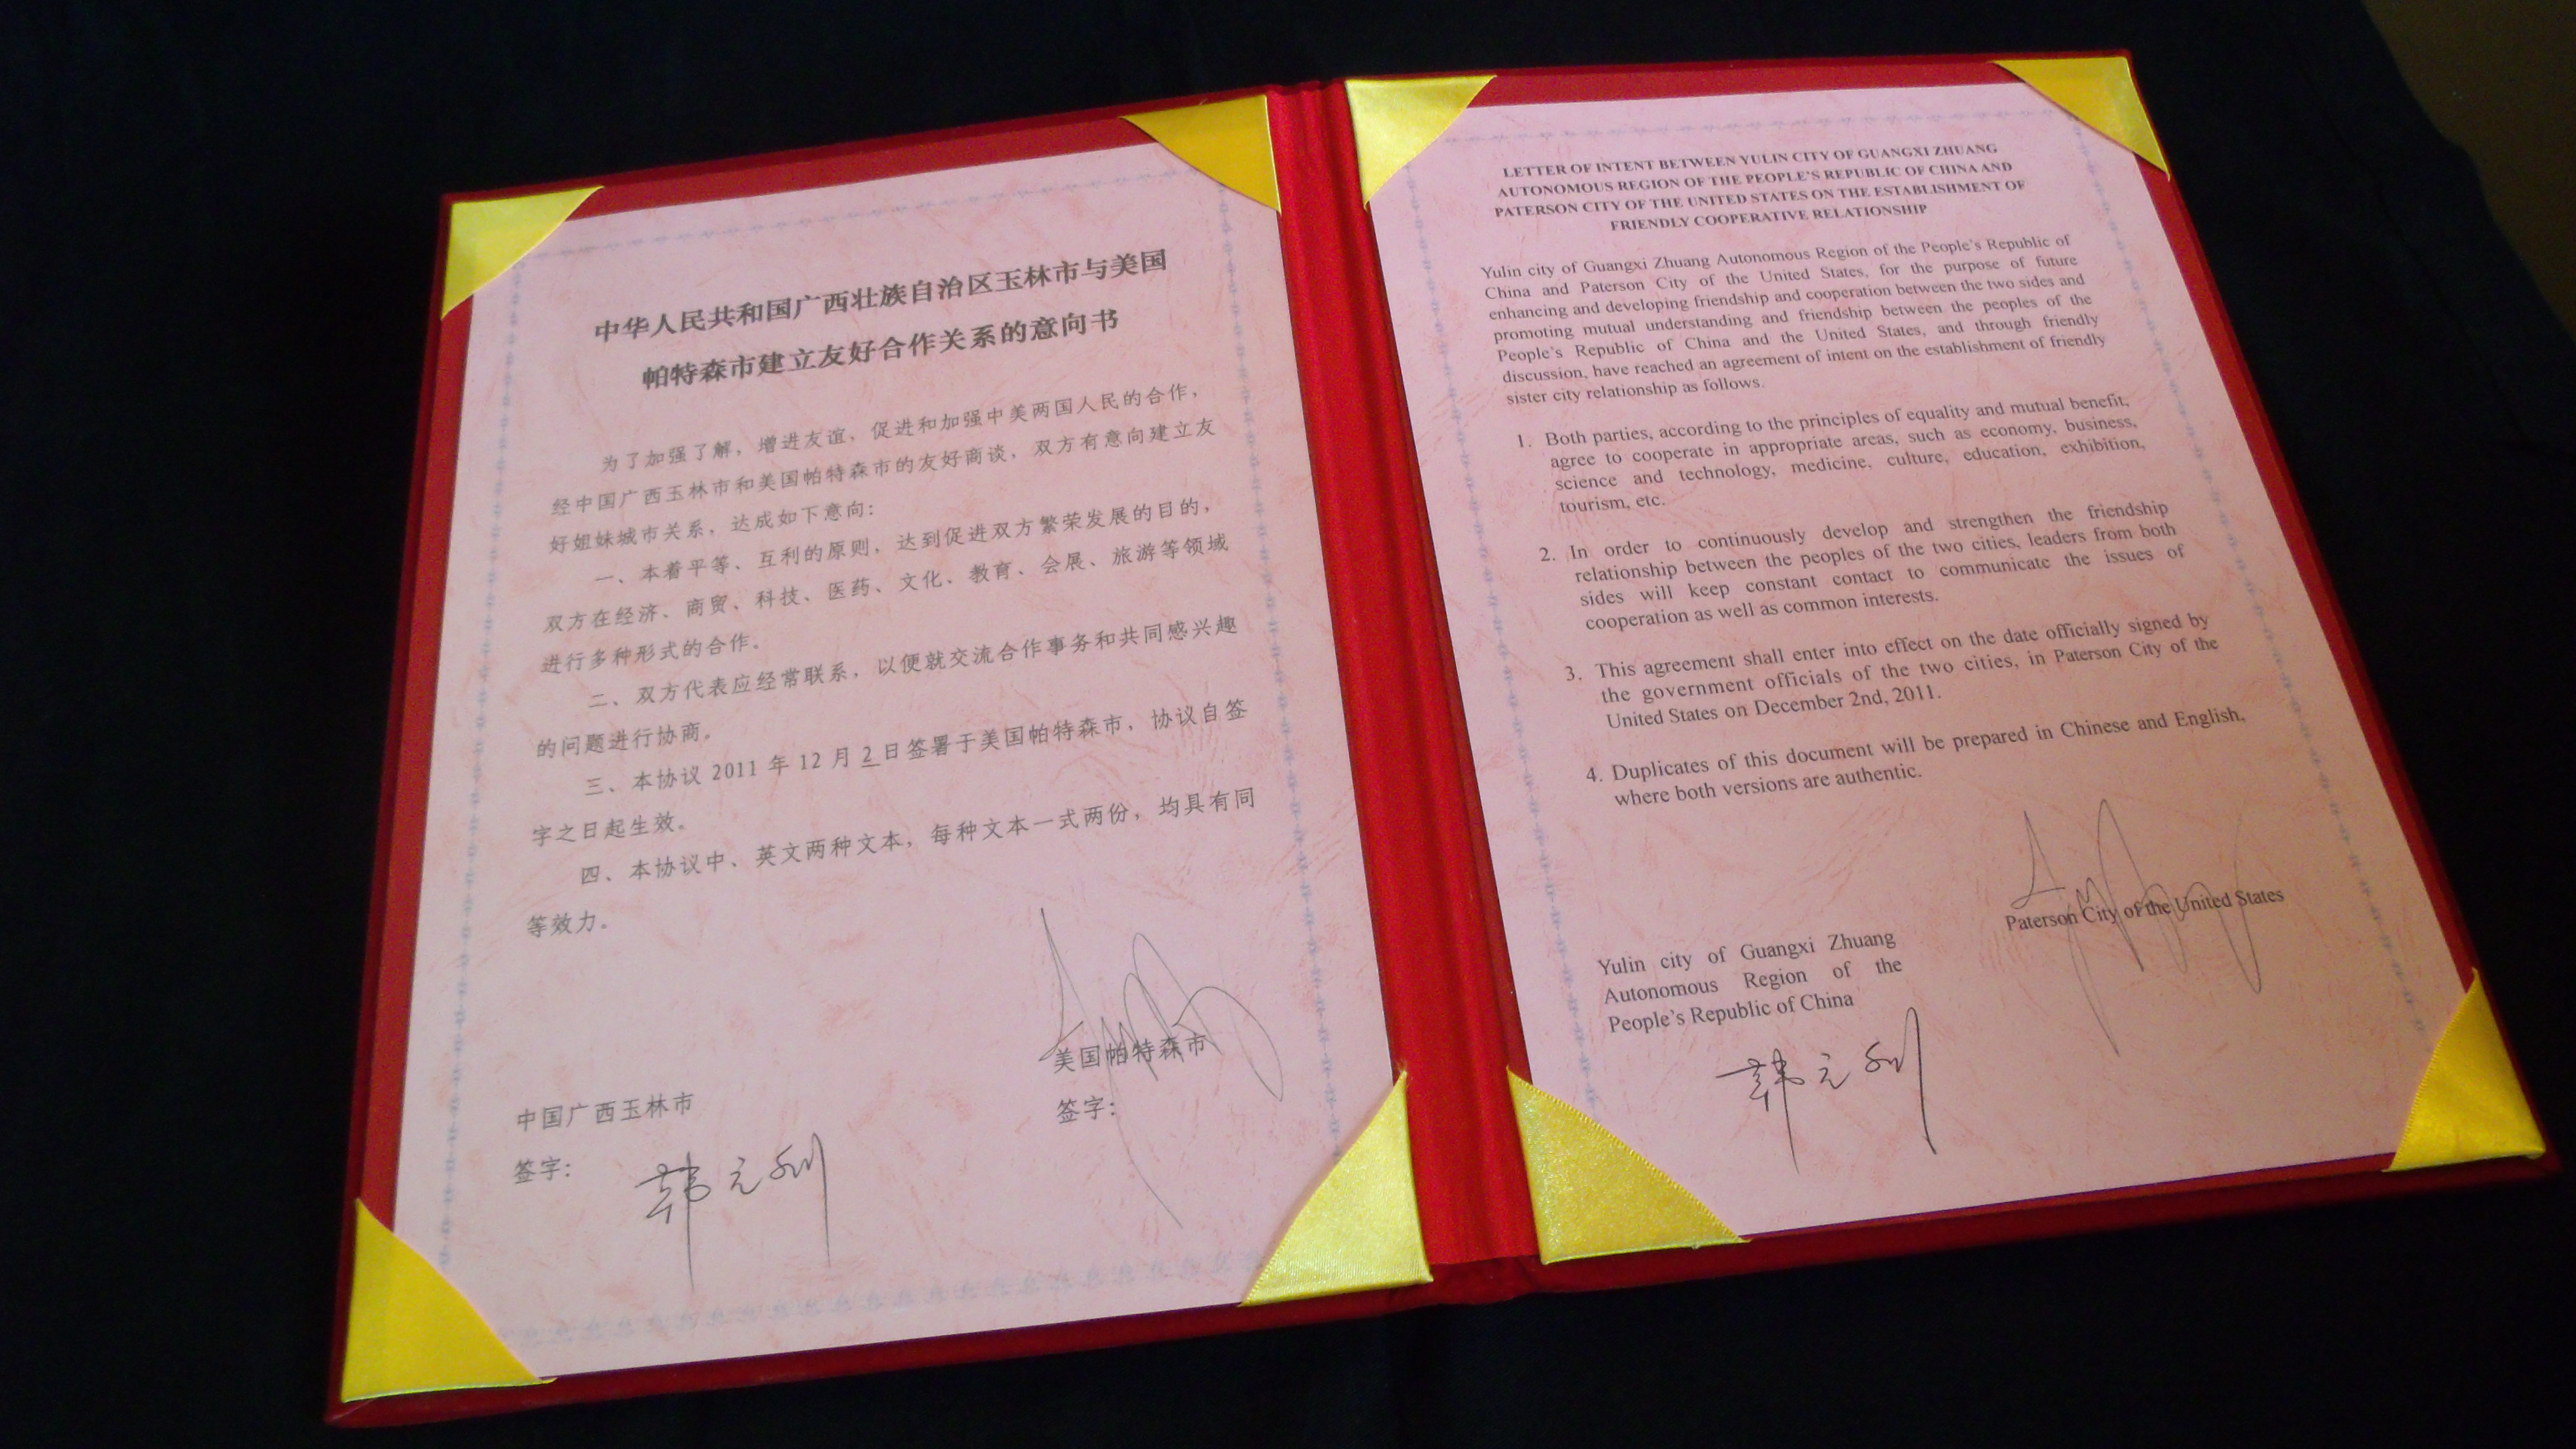 中华人民共和国广西壮族自治区玉林市与美国
帕特森市建立友好合作关系的意向书
为了加强了解，增进友谊，促进和加强中美两国人民的合作，
经中国广西玉林市和美国帕特森市的友好商谈，双方有意向建立友
好姐妹城市关系，达成如下意向：
一、本着平等、互利的原则，达到促进双方繁荣发展的目的，
双方在经济、商贸、科技、医药、文化、教育、会展、旅游等领域
进行多种形式的合作。
二、双方代表应经常联系，以便就交流合作事务和共同感兴趣
的问题进行协商。
三、本协议 2011 年 12 月 2 日签署于美国帕特森市，协议自签
字之日起生效。
四、本协议中、英文两种文本，每种文本一式两份，均具有同
等效力。
美国帕特森市
签字：
中国广西玉林市
签字：
LETTER OF INTENT BETWEEN YULIN CITY OF GUANGXI ZHUANG
AUTONOMOUS REGION OF THE PEOPLE'S REPUBLIC OF CHINA AND
PATERSON CITY OF THE UNITED STATES ON THE ESTABLISHMENT OF
FRIENDLY COOPERATIVE RELATIONSHIP
Yulin city of Guangxi Zhuang Autonomous Region of the People's Republic of
China and Paterson City of the United States, for the purpose of future
enhancing and developing friendship and cooperation between the two sides and
promoting mutual understanding and friendship between the peoples of the
People's Republic of China and the United States, and through friendly
discussion, have reached an agreement of intent on the establishment of friendly
sister city relationship as follows.
1. Both parties, according to the principles of equality and mutual benefit,
agree to cooperate in appropriate areas, such as economy, business,
science and technology, medicine, culture, education, exhibition,
tourism, etc.
2. In order to continuously develop and strengthen the friendship
relationship between the peoples of the two cities, leaders from both
sides will keep constant contact to communicate the issues of
cooperation as well as common interests.
3. This agreement shall enter into effect on the date officially signed by
the government officials of the two cities, in Paterson City of the
United States on December 2nd, 2011.
4. Duplicates of this document will be prepared in Chinese and English,
where both versions are authentic.
Paterson City of the United States
Yulin city of Guangxi Zhuang
Autonomous Region of the
People's Republic of China